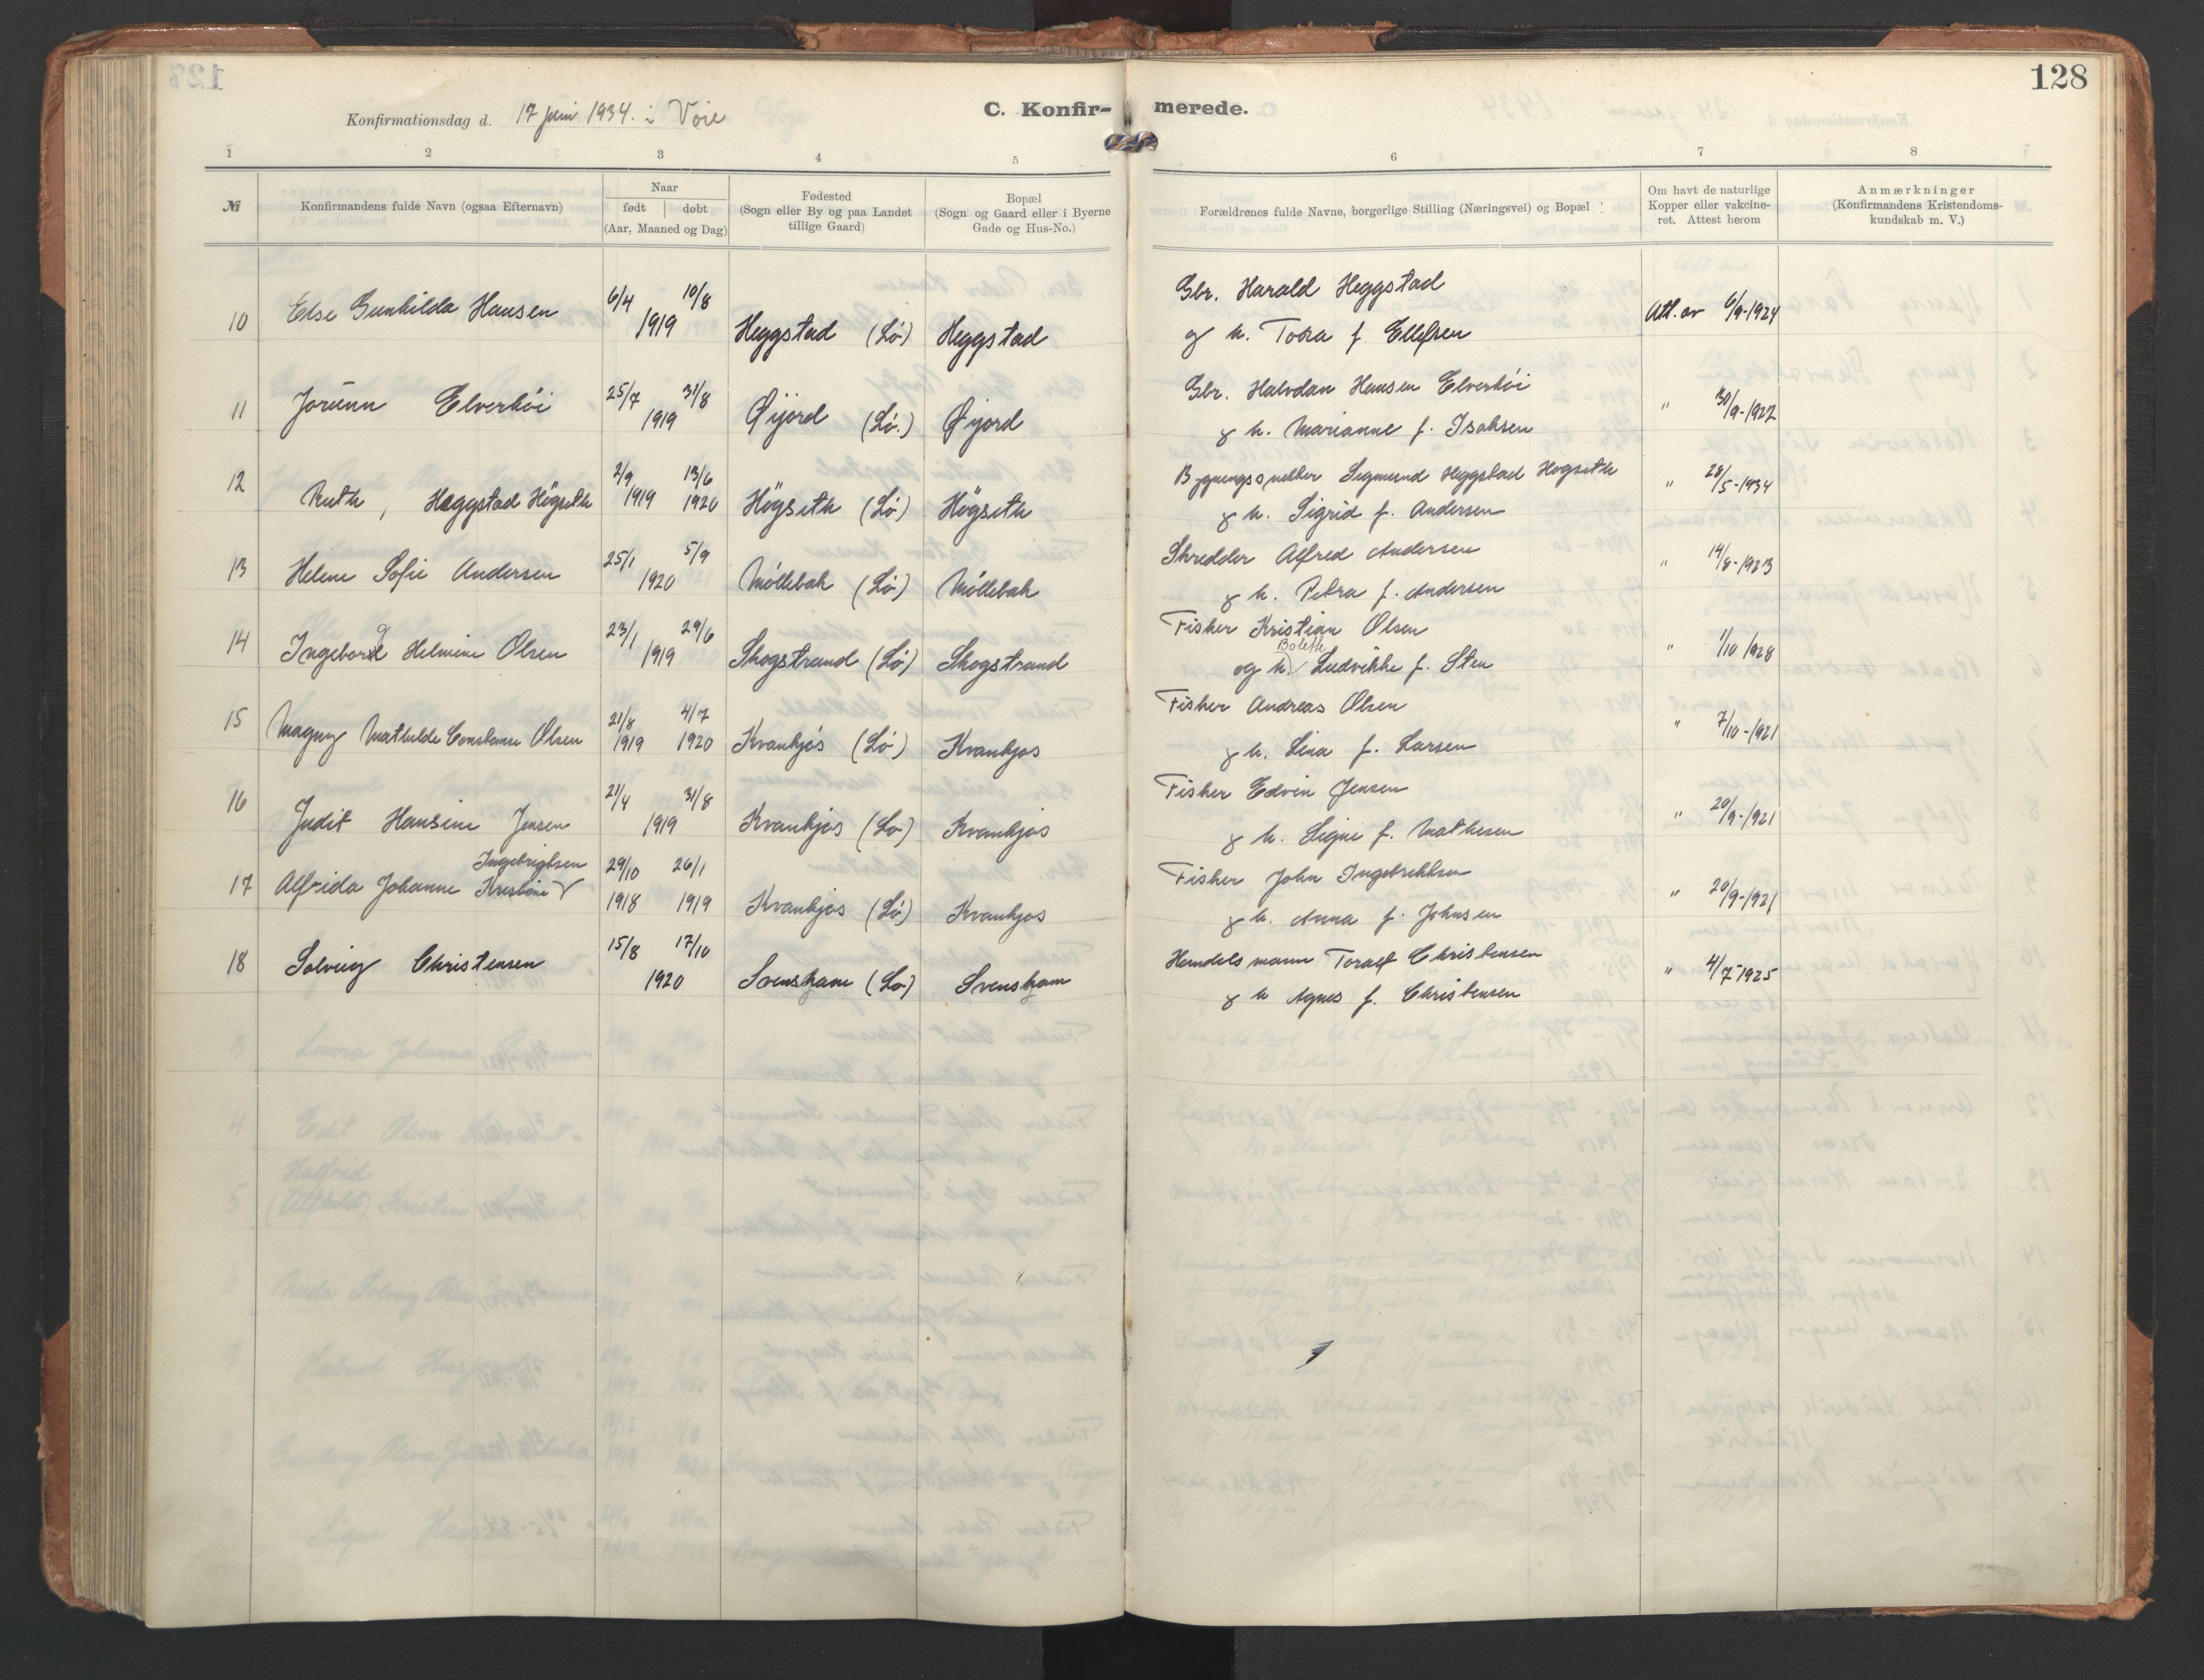 128
Konfirmationsdag d. 17 juni 1934. i Voie
C. Konfir- merede.
1 2 3 4 5 6 7 8
№
Konfirmandens fulde Navn (ogsaa Efternavn)
Naar
født døbt
(Aar, Maaned og Dag)
Fødested
(Sogn eller By og paa Landet
tillige Gaard)
Bopæl
(Sogn og Gaard eller i Byerne
Gade og Hus-No.)
Forældrenes fulde Navne, borgerlige Stilling (Næringsvei) og Bopæl
Om havt de naturlige
Kopper eller vakcine-
ret. Attest herom
Anmærkninger
(Konfirmandens Kristendoms-
kundskab m. V.)
10 Else Gunhilda Hansen 6/4 10/8 Gbr. Harald Heggstad
1919 Heggstad (Lø) Heggstad g h. Tora f Ellefsen Att. av 6/9-1924
11 Jorunn Elverhöi 25/7 31/8 Gbr. Halvdan Hansen Elverhöi
1919 Øijord (Lø.) Øijord g h. Marianne f. Isaksen " 30/9-1927
12 Ruth, Heggstad Högseth 2/9 13/6 Bygningssnekker Sigmund Heggstad Hogseth
1919 1920 Högseth (Lø) Högseth g h. Sigrid f. Andersen " 28/5-1934
13 Helene Sofie Andersen 25/1 5/9 Skredder Alfred Andersen
1920 Møllebak (Lø) Møllebak g h. Petra f. Andersen " 14/8-1923
14 Ingeborg Helmine Olsen 23/1 29/6 Fisker Kristian Olsen
Bolette
1919 Skogstrand (Lø) Skogstrand og h. Ludvikke f. Sten " 1/10 1928
15 Magny Mathilde Constanse Olsen 21/8 4/7 Fisker Andreas Olsen
1919 1920 Kvankjøs (Lø) Kvankjos g h. Lina f. Larsen " 7/10-1921
16 Judit Hansine Jensen 21/4 31/8 Fisker Edvin Jensen
1919 Kvankjos (Lø) Kvankjos g h. Signe f. Mathesen " 20/9-1921
Ingebrigtsen
17 Alfrida Johanne Kristine 29/10 26/1 Fisker John Ingebriktsen
1918 1919 Kvankjos (Lø) Kvankjos g h. Anna f. Johnsen " 20/9-1921
18 Solveig Christensen 15/8 17/10 Handelsmann Toralf Christensen
1920 Svensham (Lø) Svensham g h Agnes f. Christensen " 4/7-1925